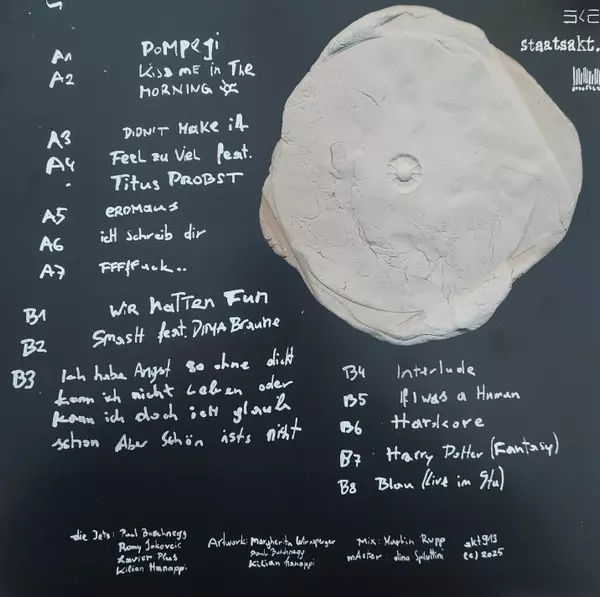 staatsakt.
A1 POMPEJI
A2 Kiss ME in The
MORNING
A3 DIDN'T Make it
A4 FeeL zu VieL feat.
Titus PROBST
A5 eROMANS
A6 ich schreib dir
A7 FFFfuck..
B1 WiR hatten Fun
B2 Smash feat. DINYA Braune
B3 Ich habe Angst so ohne dich
kann ich nicht Leben oder
kann ich doch ich glaub
schon Aber Schön ists nicht
B4 Interlude
B5 If I was a Human
B6 Hardcore
B7 Harry Potter (Fantasy)
B8 Blau (Live im Stu)
die Jets: Paul Buschnegg
Romy Jakovcic
Xavier Plus
Kilian Hanappi
Artwork: Margherita
Paul Buschnegg
Kilian Hanappi
Mix: Martin Rupp
mAster
akt913
(c) 2025